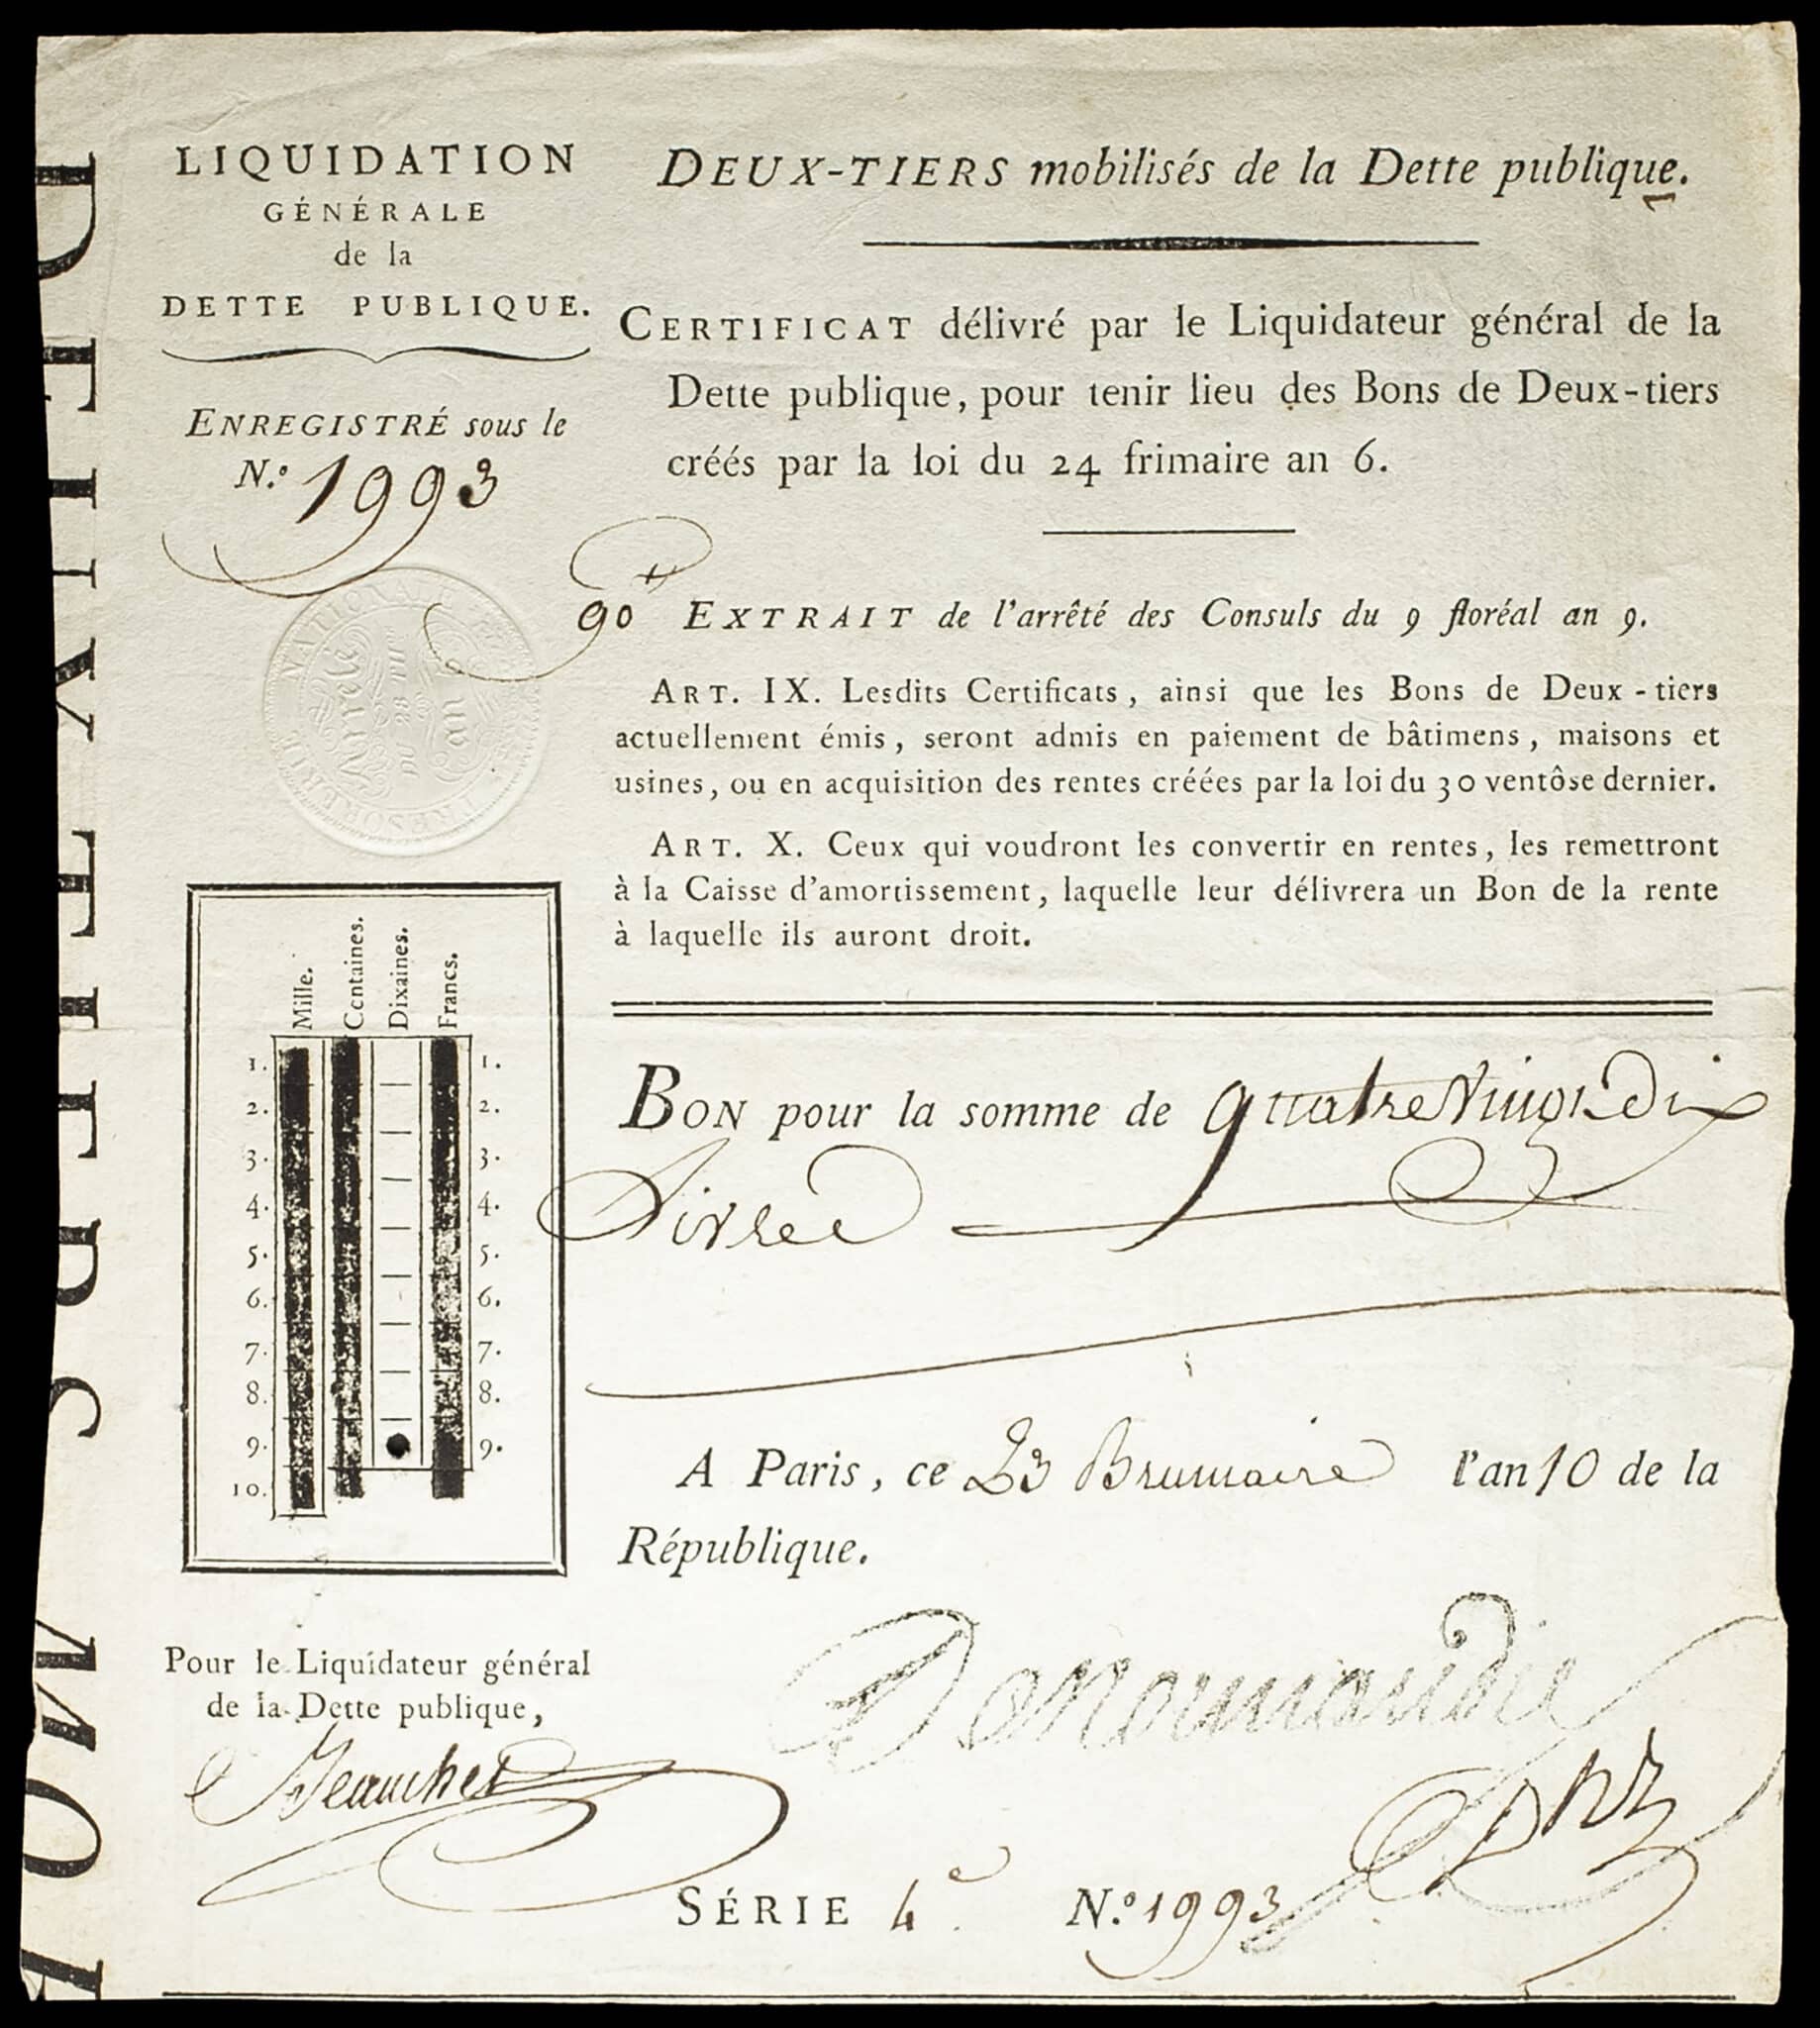 LIQUIDATION
GÉNÉRALE
de la
DETTE PUBLIQUE.
ENREGISTRÉ sous le
N.º 1993
DEUX-TIERS mobilisés de la Dette publique.
CERTIFICAT délivré par le Liquidateur général de la
Dette publique, pour tenir lieu des Bons de Deux-tiers
créés par la loi du 24 frimaire an 6.
90
EXTRAIT de l'arrêté des Consuls du 9 floréal an 9.
ART. IX. Lesdits Certificats, ainsi que les Bons de Deux-tiers
actuellement émis, seront admis en paiement de bâtimens, maisons et
usines, ou en acquisition des rentes créées par la loi du 30 ventôse dernier.
ART. X. Ceux qui voudront les convertir en rentes, les remettront
à la Caisse d'amortissement, laquelle leur délivrera un Bon de la rente
à laquelle ils auront droit.
Mille. Centaines. Dixaines. Francs.
1. 1.
2. 2.
3. 3.
4. 4.
5. 5.
6. 6.
7. 7.
8. 8.
9. 9.
10.
BON pour la somme de quatre Vingt Dix
Livres
A Paris, ce 23 Brumaire l'an 10 de la
République.
Pour le Liquidateur général
de la Dette publique,
Denormandie
SÉRIE 4e. N.º 1993
DEUX TIERS MOB